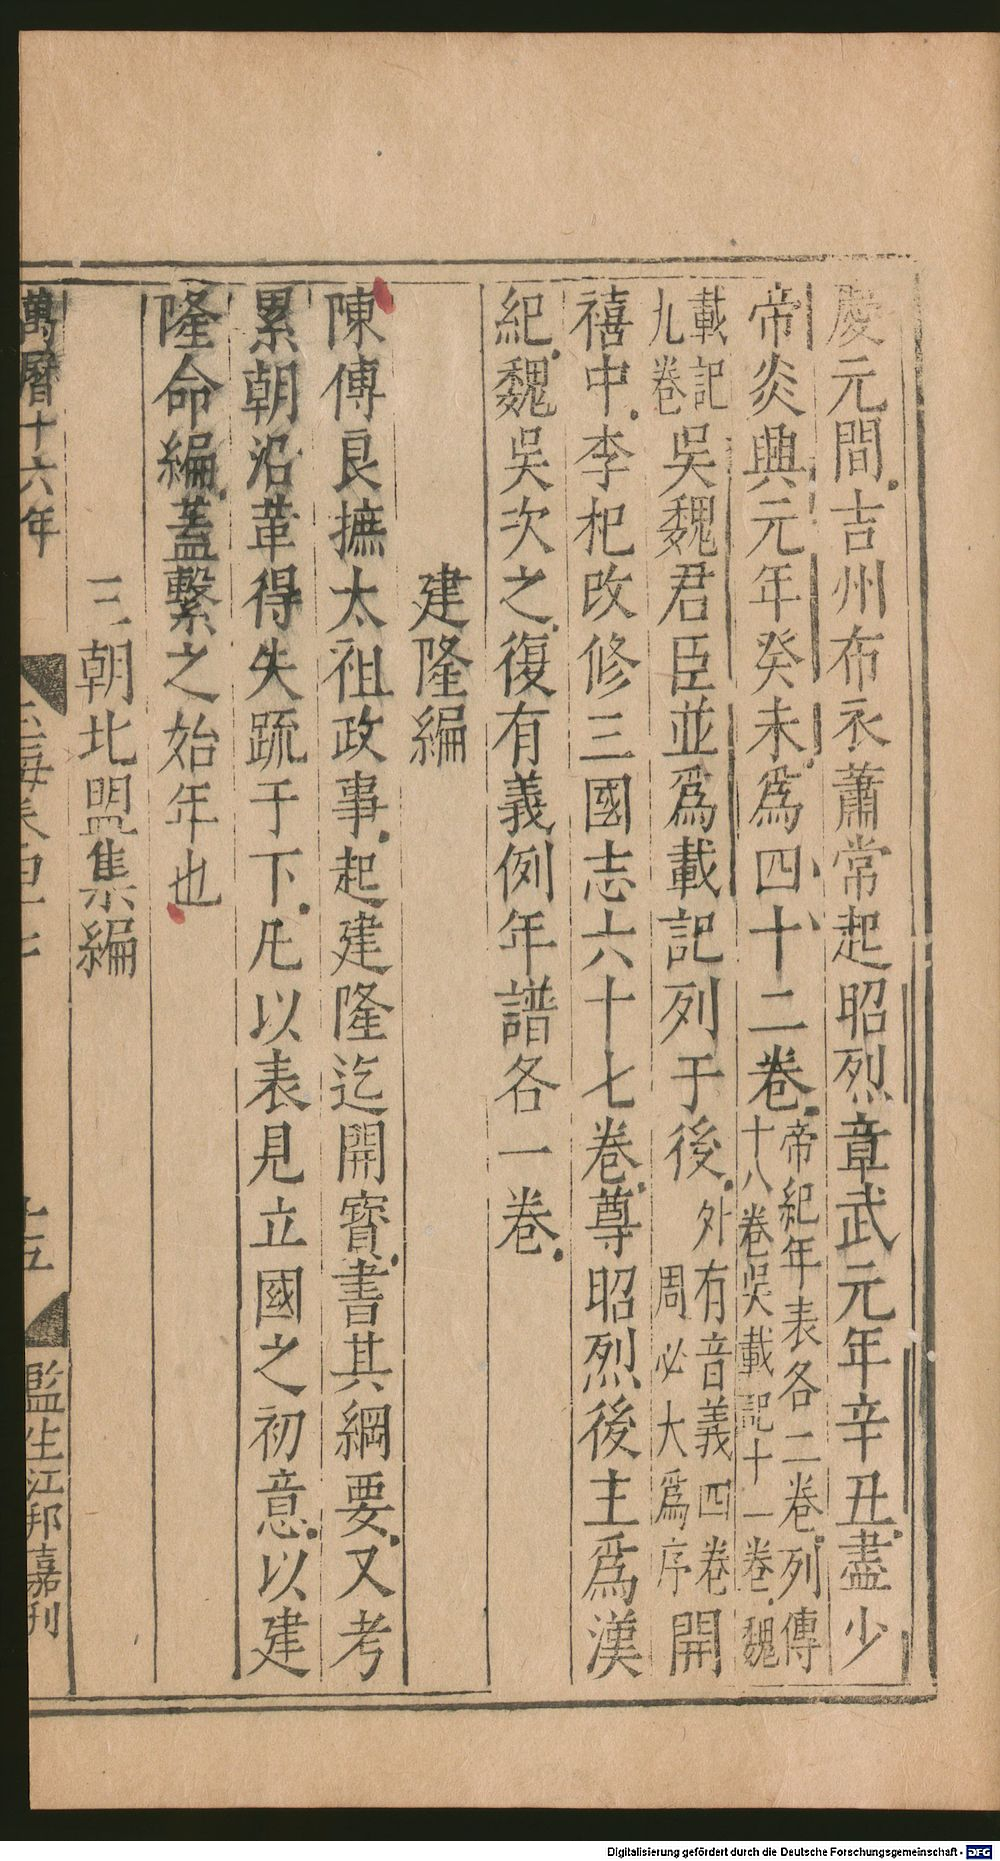 慶元間吉州布衣蕭常起昭烈章武元年辛丑盡少
帝炎興元年癸未爲四十二卷帝紀年表各二卷列傳
十八卷吳載記十一卷魏
載記
九卷吳魏君臣並爲載記列于後外有音義四卷
周必大爲序開
禧中李杞改修三國志六十七卷尊昭烈後主爲漢
紀魏吳次之復有義例年譜各一卷
建隆編
陳傅良撫太祖政事起建隆迄開寳書其綱要又考
累朝沿革得失疏于下凡以表見立國之初意以建
隆命編蓋繫之始年也
三朝北盟集編
萬曆十六年
十五
監生江邦嘉刊
Digitalisierung gefördert durch die Deutsche Forschungsgemeinschaft - DFG